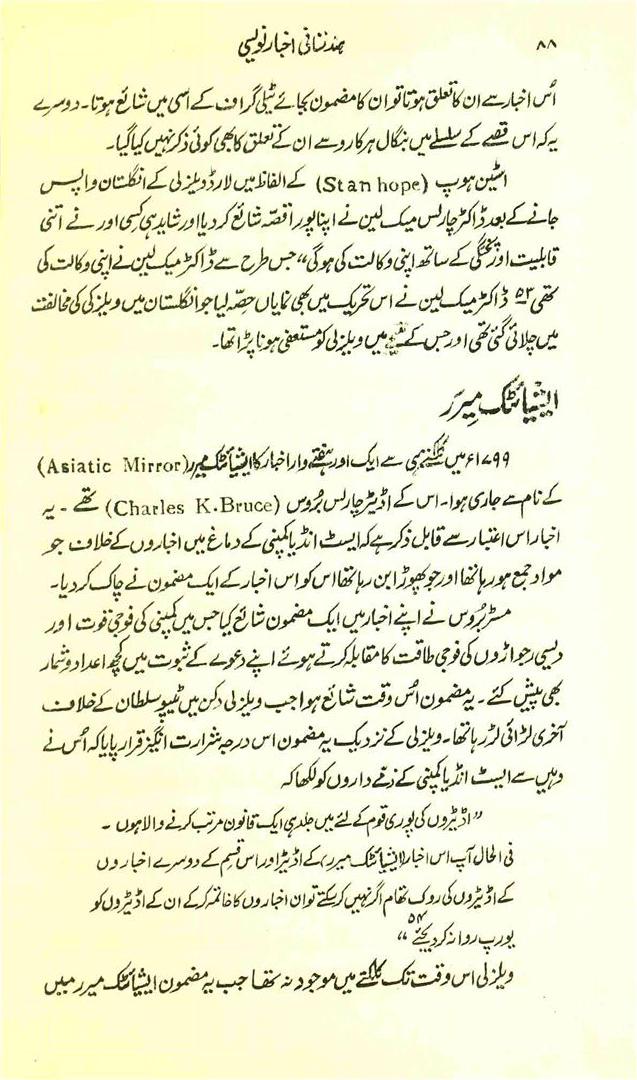 ۸۸ ہندستانی اخبار نویسی
اُس اخبار سے ان کا تعلق ہوتا تو ان کا مضمون بجائے ٹیلی گراف کے اسی میں شائع ہوتا۔ دوسرے
یہ کہ اس قصے کے سلسلے میں بنگال ہرکارو سے ان کے تعلق کا بھی کوئی ذکر نہیں کیا گیا۔
اسٹین ہوپ (Stanhope) کے الفاظ میں لارڈ ویلزلی کے انگلستان واپس
جانے کے بعد ڈاکٹر چارلس میک لین نے اپنا پورا قصّہ شائع کر دیا اور شاید ہی کسی اور نے اتنی
قابلیت اور پختگی کے ساتھ اپنی وکالت کی ہوگی“ جس طرح سے ڈاکٹر میک لین نے اپنی وکالت کی
تھی ۵۳ ڈاکٹر میک لین نے اس تحریک میں بھی نمایاں حصّہ لیا جو انگلستان میں ویلزلی کی مخالفت
میں چلائی گئی تھی اور جس کے نتیجے میں ویلزلی کو مستعفی ہونا پڑا تھا۔
ایشیاٹٹک مِرَر
۱۷۹۹ء میں کلکتے ہی سے ایک اور ہفتے وار اخبار کا ایشیاٹٹک میرر (Asiatic Mirror)
کے نام سے جاری ہوا۔ اس کے اڈیٹر چارلس بُروس (Charles K.Bruce) تھے۔ یہ
اخبار اس اعتبار سے قابل ذکر ہے کہ ایسٹ انڈیا کمپنی کے دماغ میں اخباروں کے خلاف جو
مواد جمع ہو رہا تھا اور جو پھوڑا بن رہا تھا اس کو اس اخبار کے ایک مضمون نے چاک کر دیا۔
مسٹر بُروس نے اپنے اخبار میں ایک مضمون شائع کیا جس میں کمپنی کی فوجی قوت اور
دیسی رجواڑوں کی فوجی طاقت کا مقابلہ کرتے ہوئے اپنے دعوے کے ثبوت میں کچھ اعداد و شمار
بھی پیش کئے۔ یہ مضمون اُس وقت شائع ہوا جب ویلزلی دکن میں ٹیپو سلطان کے خلاف
آخری لڑائی لڑ رہا تھا۔ ویلزلی کے نزدیک یہ مضمون اس درجہ شرارت انگیز قرار پایا کہ اُس نے
وہیں سے ایسٹ انڈیا کمپنی کے ذمّے داروں کو لکھا کہ
”اڈیٹروں کی پوری قوم کے لئے میں جلد ہی ایک قانون مرتب کرنے والا ہوں ۔
فی الحال آپ اس اخبار (ایشیاٹٹک میرر) کے اڈیٹر اور اس قسم کے دوسرے اخباروں
کے اڈیٹروں کی روک تھام اگر نہیں کر سکتے تو ان اخباروں کا خاتمہ کر کے ان کے اڈیٹروں کو
یورپ روانہ کر دیجئے ۵۴“
ویلزلی اس وقت تک کلکتے میں موجود نہ تھا جب یہ مضمون ایشیاٹٹک میرر میں